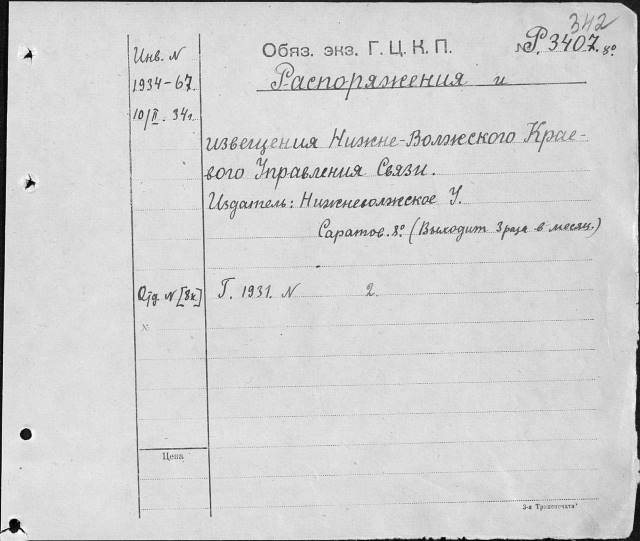 342
Инв. N
Обяз. экз. Г. Ц. К. П.
№ Р. 3407. 8°.
1934-67.
Распоряжения и
10/II. 34г.
извещения Нижне-Волжского Крае-
вого Управления Связи.
Издатель: Нижневолжское У.
Саратов. 8°. (Выходит 3 раза в месяц.)
Отд. N [8к]
Г. 1931. N 2.
x
Цена
3-я Транспечать